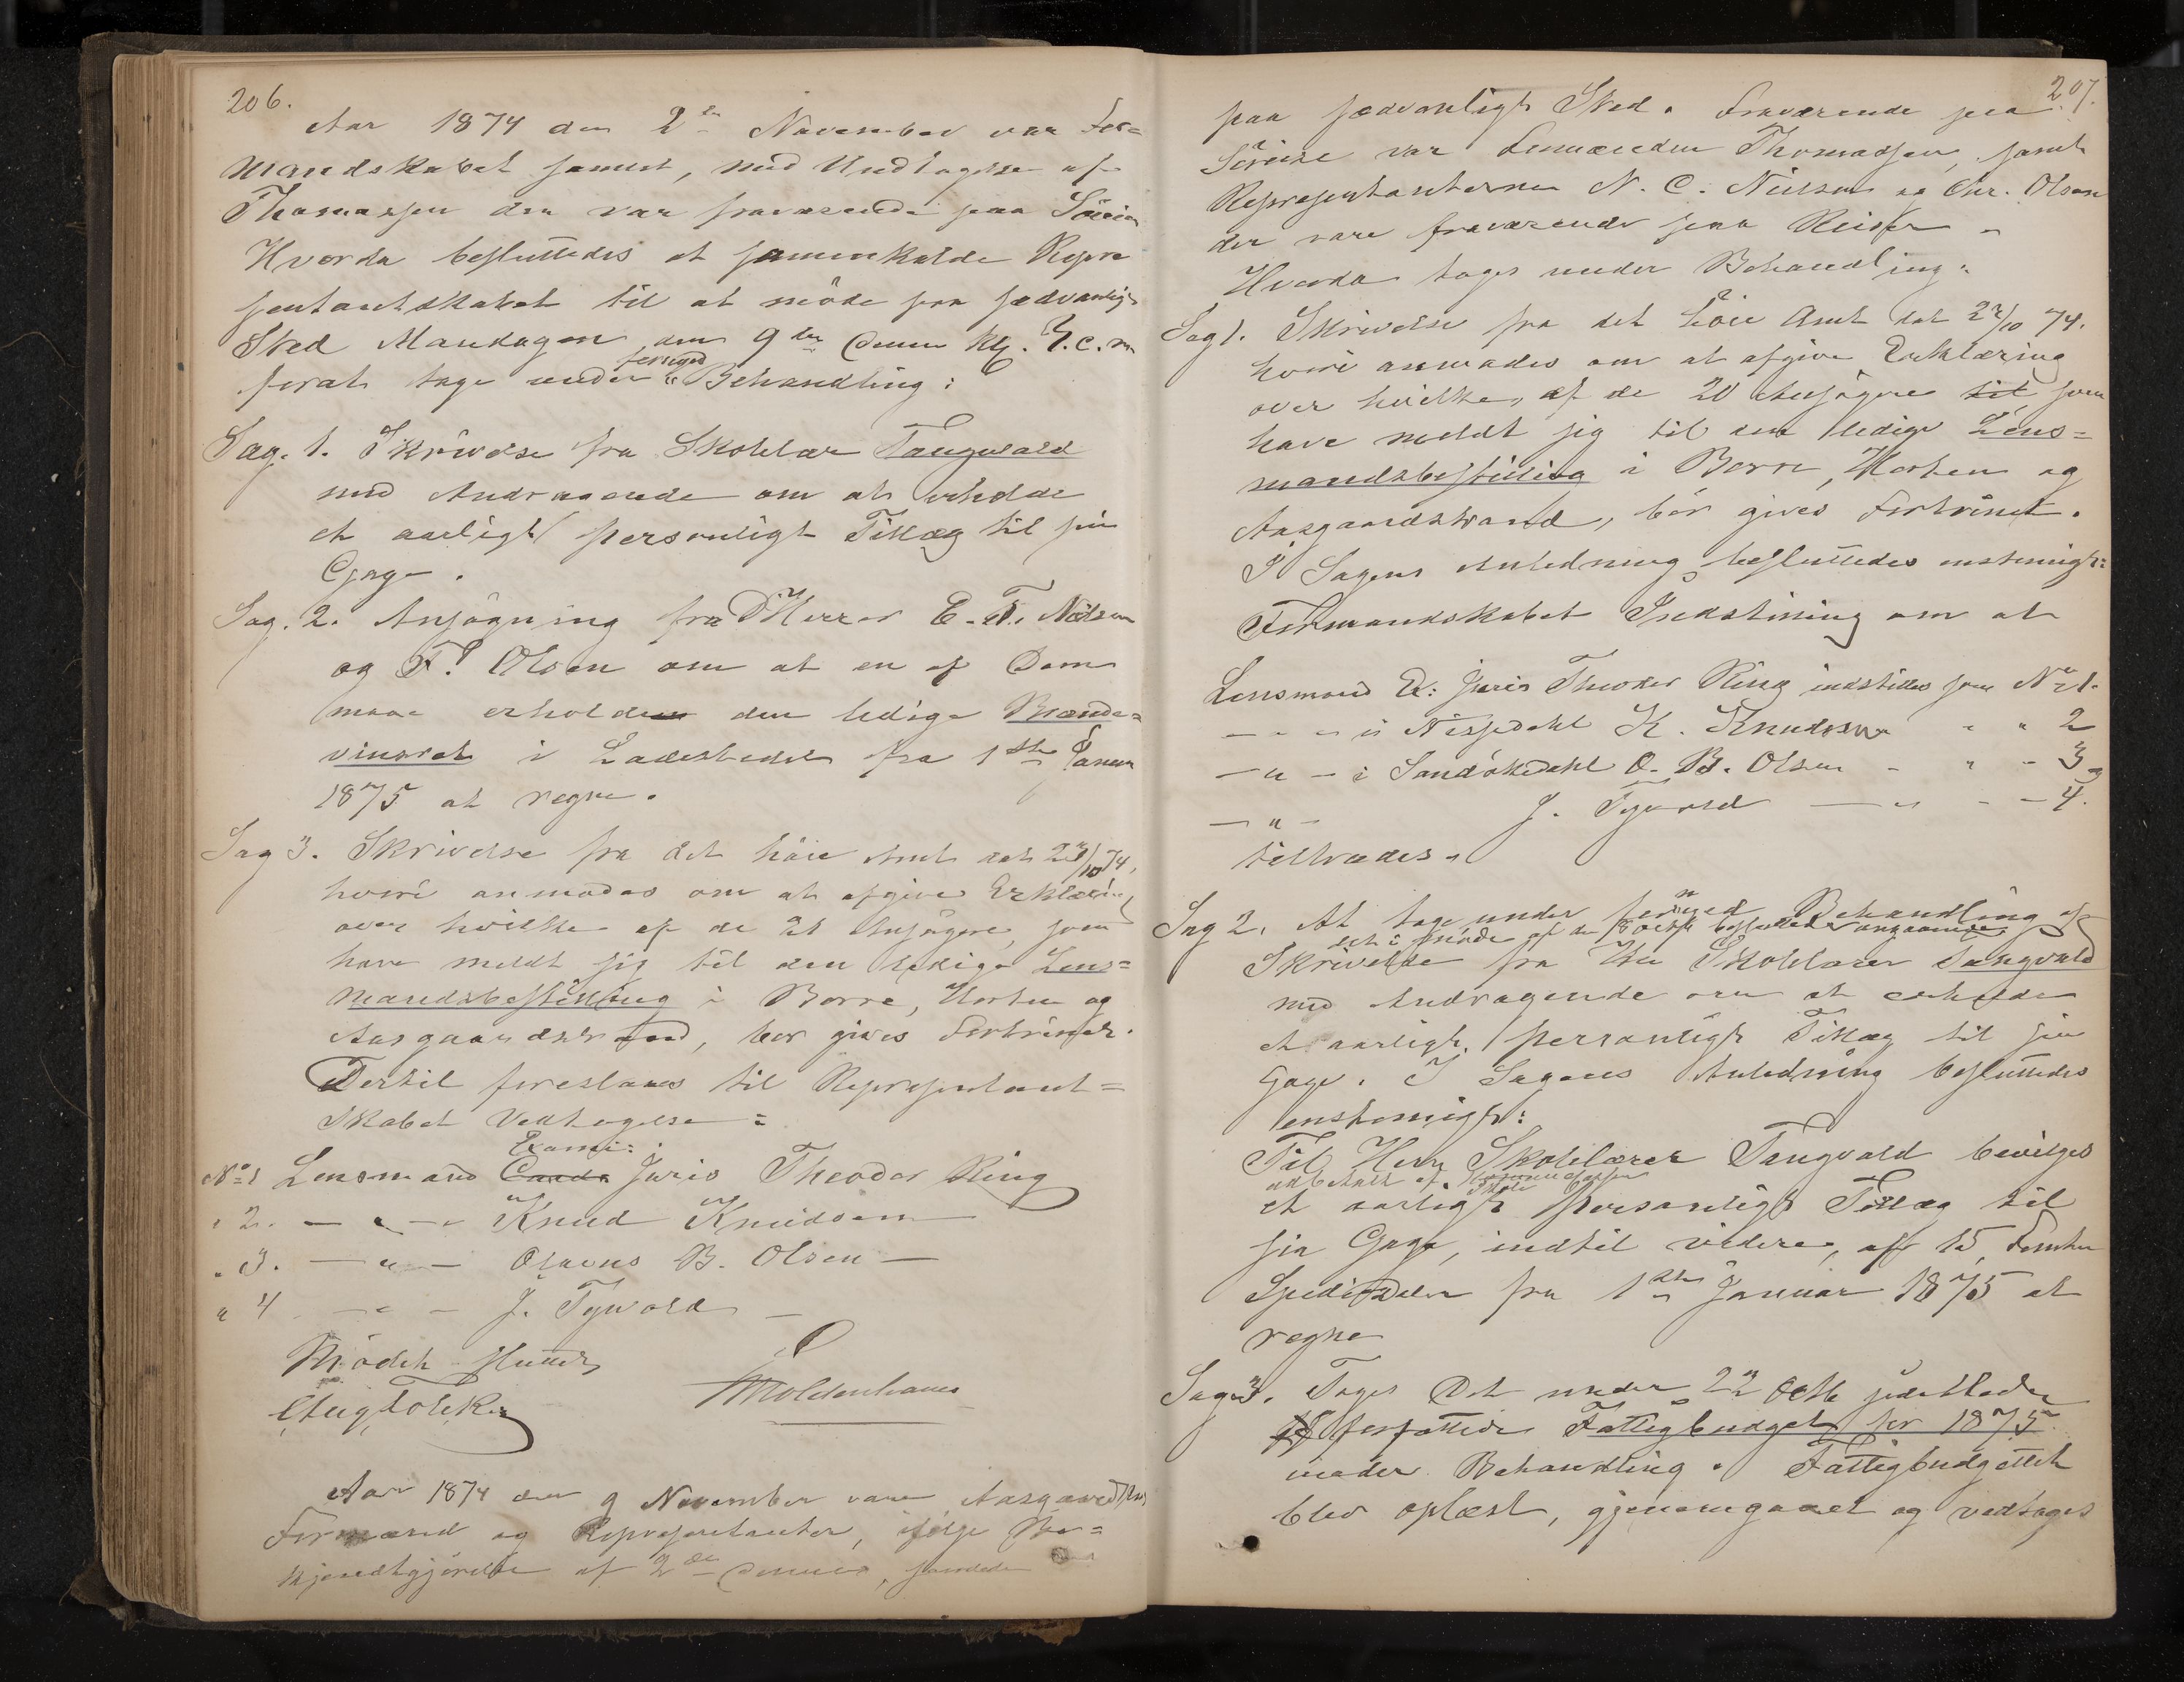 206.
Aar 1874 den 2den November var For=
mandskabet samlet, med Undtagelse af
Thomassen der var fraværende paa Söreise
Hvorda besluttedes at sammenkalde Repre
sentantskabet til at möde paa sædvanligt
Sted Mandagen den 9de Dennes Kl.
forat tage under fornyed Behandling:
Sag. 1. Skrivelse fra Skolelær Tangvald
med Andragende om at erholde
et aarligt personligt Tillæg til sin
Gage.
Sag. 2. Ansögning fra DHerrer E. T. Nielsen
og F. Olsen om at en af Dem
maa erholde den ledige Brænde=
vinsret i Ladestedet fra 1ste Januar
1875 at regne.
Sag 3. Skrivelse fra det höie Amt dat 22/10 74,
hvori anmodes om at afgive Erklæring
over hvilke af de 21 Ansögere, som
have meldt sig til den ledige Lens=
mandsbestilling i Borre, Horten og
Aasgaardstrand, bör gives Fortrinet.
Dertil foreslaaes til Representant=
skabet Vedtagelse:
No 1 Lensmand Cand. Exami: Juris Theodor Ring
" 2. — " — Knud Knudsen —
" 3. — " — Olaves B. Olsen —
" 4 — " — J. Tyvold —
Mödet sluttet
Aug Foleker Moldenhauer
Aar 1874 den 9 November vare Aasgaardstrands
Formænd og Representanter, ifölge Be=
kjendtgjörelse af 2den Dennes, samlede
207.
paa sædvanligt Sted. Fraværende paa
Söreise var Formanden Thomassen, samt
Representanterne N. C. Nielsen og Chr. Olsen
der vare fraværende paa Reiser.
Hvorda toges under Behandling:
Sag 1. Skrivelse fra det höie Amt dat 22/10 74.
hvori anmodes om at afgive Erklæring
over hvilke, af de 20 Ansögere til som
have meldt sig til den ledige Lens=
mandsbestilling i Borre, Horten og
Aasgaardstrand, bör gives Fortrinet.
I Sagens Anledning besluttedes enstemigt:
Formandskabet Indstilling om at
Lensmand Ex: Juris Theodor Ring indstilles som No 1.
— " — i Nissedahl K. Knudsen " " 2
— " — i Sandökedahl O. B. Olsen - " - 3 og
— " — J. Tyvold — " - - 4.
tiltrædes.
Sag 2. At tage under fornyed Behandling af
det i Möde af den 8 Octbr besluttede angaaende
Skrivelse fra Hr Skolelærer Tangvald
med Andragende om at erholde
et aarligt personligt Tillæg til sin
Gage. I Sagens Anledning besluttedes
enstemigt:
Til Herr Skolelærer Tangvald bevilges
udbetalt af Skole Kommunekassen
et aarligt personligt Tillæg til
sin Gage, indtil videre, af 15 Femten
Speciedaler fra 1ste Januar 1875 at
regne
Sag 3. Toges Det under 22 Octb sidstleden
forfattede Fattigbudget for 1875
under Behandling. Fattigbudgettet
blev oplæst, gjenemgaaet og vedtages